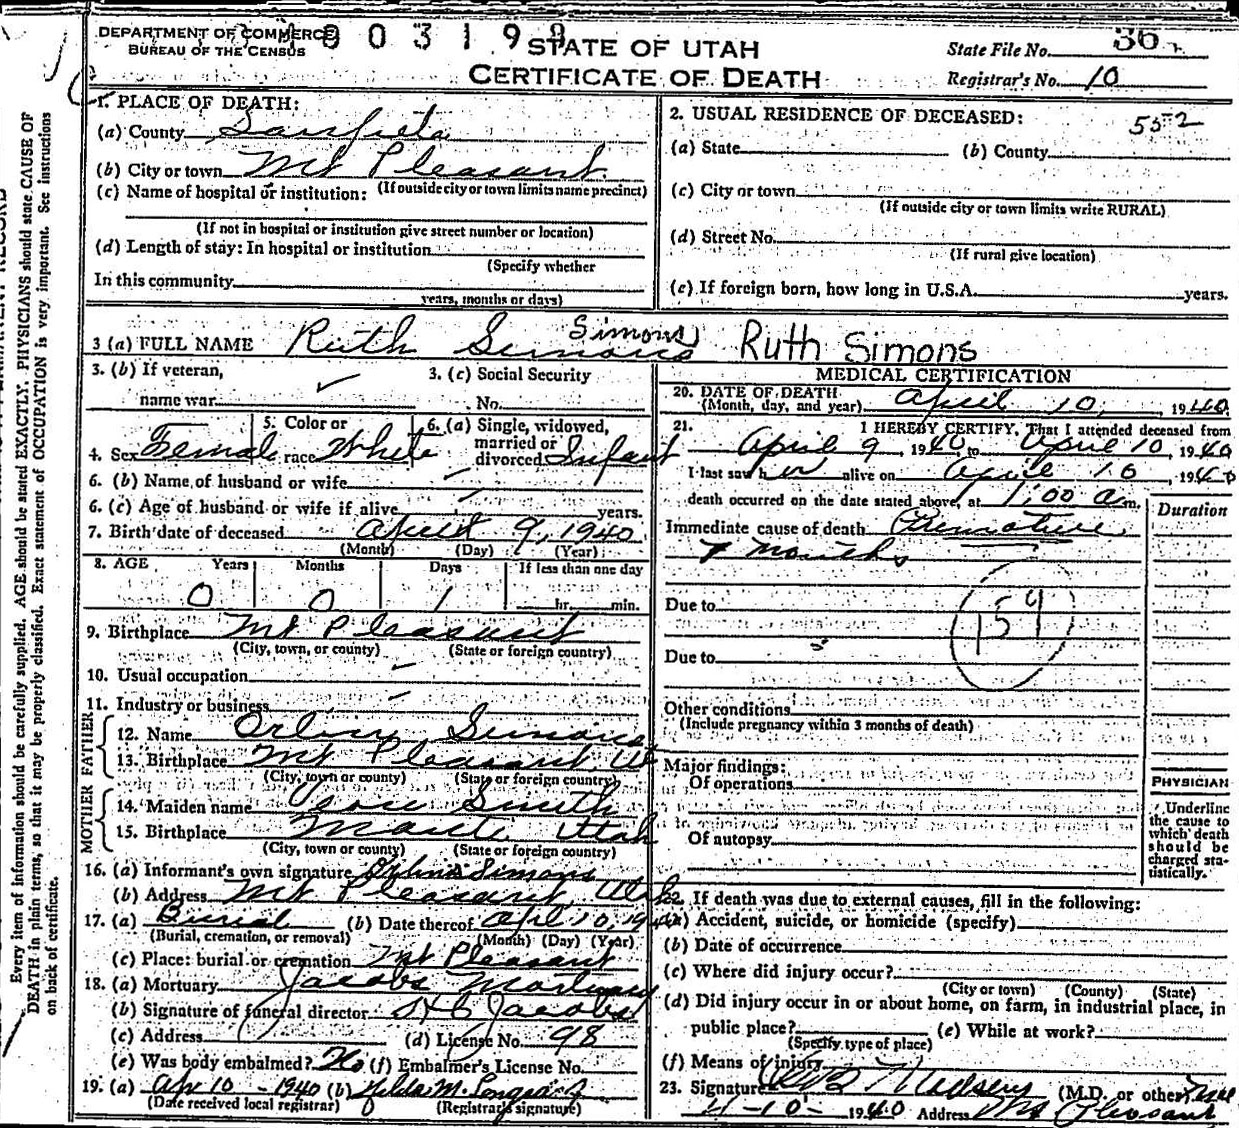 DEPARTMENT OF COMMERCE
BUREAU OF THE CENSUS
0 0 3 1 9 9
STATE OF UTAH
CERTIFICATE OF DEATH
State File No. 36
Registrar's No. 10
1. PLACE OF DEATH:
(a) County Sanpete
(b) City or town Mt Pleasant
(If outside city or town limits name precinct)
(c) Name of hospital or institution:
(If not in hospital or institution give street number or location)
(d) Length of stay: In hospital or institution
(Specify whether
In this community
years, months or days)
2. USUAL RESIDENCE OF DECEASED: 5572
(a) State (b) County
(c) City or town
(If outside city or town limits write RURAL)
(d) Street No.
(If rural give location)
(e) If foreign born, how long in U.S.A. years.
3 (a) FULL NAME Ruth Simons Simons Ruth Simons
3. (b) If veteran,
name war
3. (c) Social Security
No.
4. Sex Female 5. Color or race White 6. (a) Single, widowed, married or divorced Infant
6. (b) Name of husband or wife
6. (c) Age of husband or wife if alive years.
7. Birth date of deceased April 9, 1940
(Month) (Day) (Year)
8. AGE Years Months Days If less than one day
0 0 1 hr. min.
9. Birthplace Mt Pleasant
(City, town, or county) (State or foreign country)
10. Usual occupation
11. Industry or business
FATHER
12. Name Simons
13. Birthplace Mt Pleasant Ut
(City, town or county) (State or foreign country)
MOTHER
14. Maiden name Smith
15. Birthplace Manti Utah
(City, town or county) (State or foreign country)
16. (a) Informant's own signature Simons
(b) Address Mt Pleasant Utah
17. (a) Burial (b) Date thereof Apl 10, 1940
(Burial, cremation, or removal) (Month) (Day) (Year)
(c) Place: burial or cremation Mt Pleasant
18. (a) Mortuary Jacobs Mortuary
(b) Signature of funeral director Jacobs
(c) Address (d) License No. 98
(e) Was body embalmed? No (f) Embalmer's License No.
19. (a) Apr 10 - 1940 (b) Hilda M.
(Date received local registrar) (Registrar's signature)
MEDICAL CERTIFICATION
20. DATE OF DEATH
(Month, day, and year) April 10, 1940
21. I HEREBY CERTIFY, That I attended deceased from
April 9, 1940, to April 10, 1940
I last saw her alive on April 10, 1940
death occurred on the date stated above, at 1:00 a m.
Duration
Immediate cause of death Premature
7 months
Due to
159
Due to
Other conditions
(Include pregnancy within 3 months of death)
Major findings:
Of operations
Of autopsy
PHYSICIAN
Underline
the cause to
which death
should be
charged sta-
tistically.
22. If death was due to external causes, fill in the following:
(a) Accident, suicide, or homicide (specify)
(b) Date of occurrence
(c) Where did injury occur?
(City or town) (County) (State)
(d) Did injury occur in or about home, on farm, in industrial place, in
public place? (e) While at work?
(Specify type of place)
(f) Means of injury
23. Signature Madsen (M.D. or other)
4-10- 1940 Address Mt Pleasant
Every item of information should be carefully supplied. AGE should be stated EXACTLY. PHYSICIANS should state CAUSE OF
DEATH in plain terms, so that it may be properly classified. Exact statement of OCCUPATION is very important. See instructions
on back of certificate.